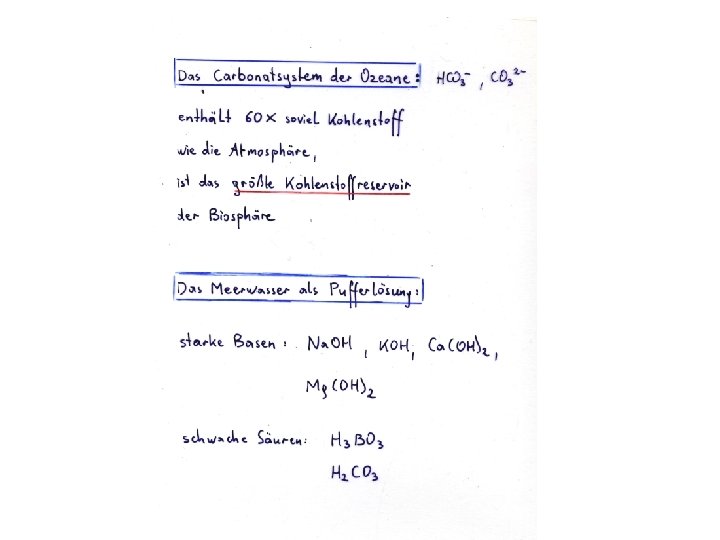 Das Carbonatsystem der Ozeane: HCO₃⁻, CO₃²⁻
enthält 60 x soviel Kohlenstoff
wie die Atmosphäre,
ist das größte Kohlenstoffreservoir
der Biosphäre
Das Meerwasser als Pufferlösung:
starke Basen: NaOH, KOH, Ca(OH)₂,
Mg(OH)₂
schwache Säuren: H₃BO₃
H₂CO₃